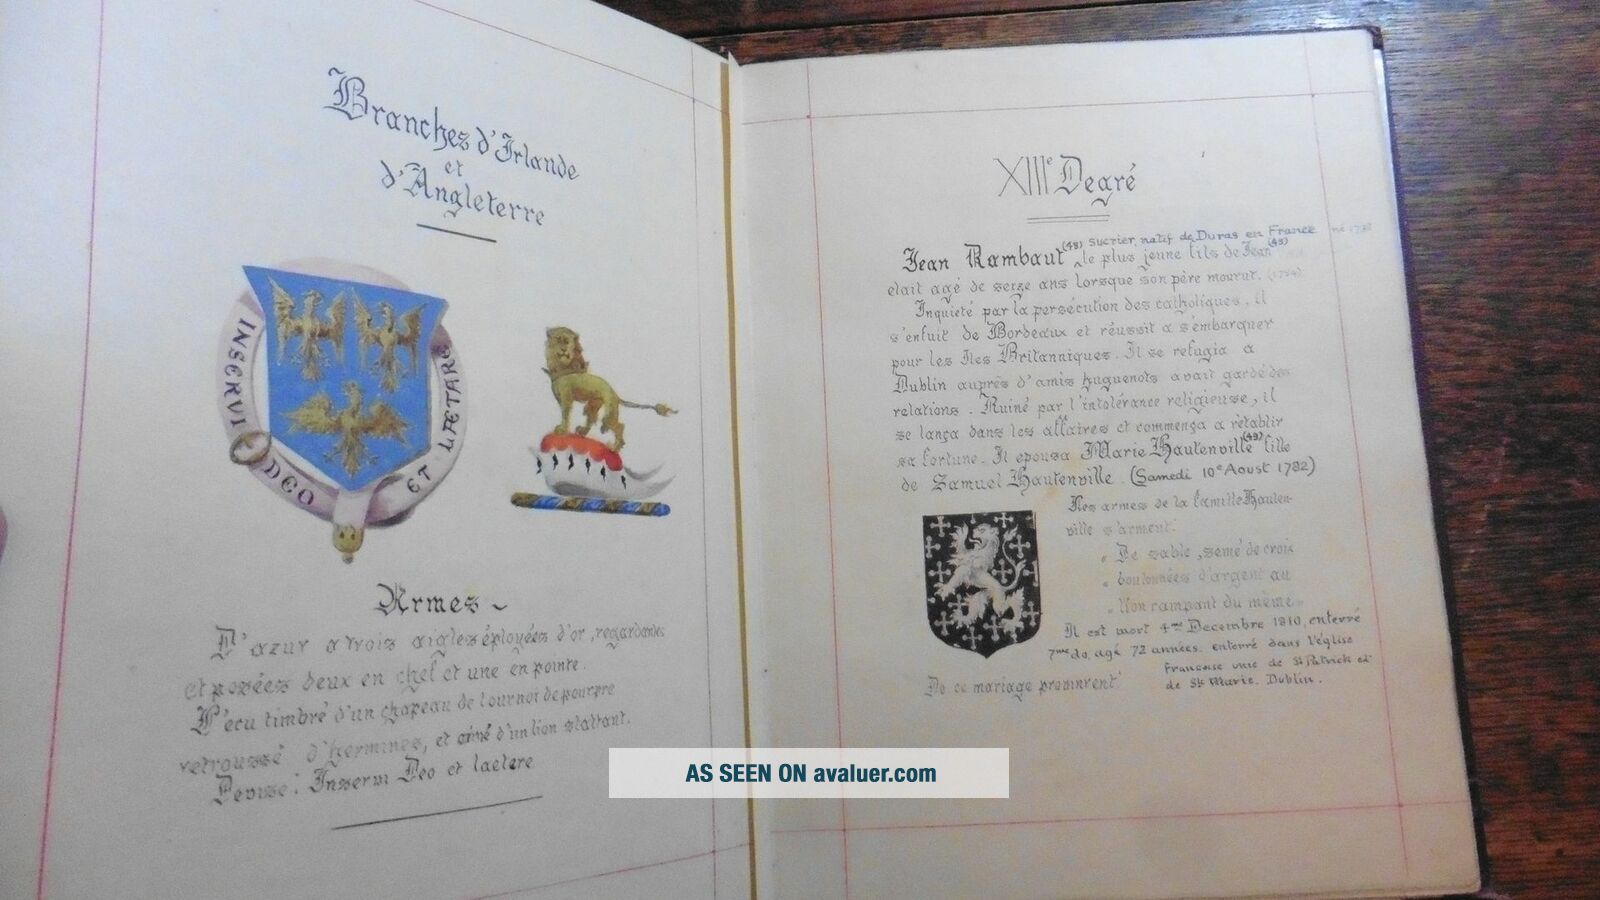 Branches d'Irlande
et
d'Angleterre
INSERVI DEO ET LÆTARE
Armes
D'azur a trois aigles éployées d'or, regardantes
et posées deux en chef et une en pointe.
L'écu timbré d'un chapeau de tournoi de pourpre
retroussé d'hermines, et cimé d'un lion statant.
Devise: Inservi Deo et laetere
XIIIe Degré
(48) sucrier, natif de Duras en France né
Jean Rambaut le plus jeune fils de Jean (45)
etait agé de seize ans lorsque son père mourut. (1754)
Inquieté par la persécution des catholiques, il
s'enfuit de Bordeaux et réussit a s'embarquer
pour les Iles Britanniques. Il se refugia a
Dublin auprès d'amis huguenots avait gardé des
relations. Ruiné par l'intolérance religieuse, il
se lança dans les affaires et commença a rétablir
sa fortune. Il epousa Marie Hautenville (49) fille
de Samuel Hautenville. (Samedi 10e Aoust 1782)
Les armes de la famille Hauten-
ville s'arment:
" De sable, semé de croix
" boutonnées d'argent au
" lion rampant du même "
Il est mort 4me Decembre 1810, enterré
7me do, agé 72 années. enterré dans l'église
Française unie de St Patrick et
de Ste Marie. Dublin.
De ce mariage provinrent
AS SEEN ON avaluer.com